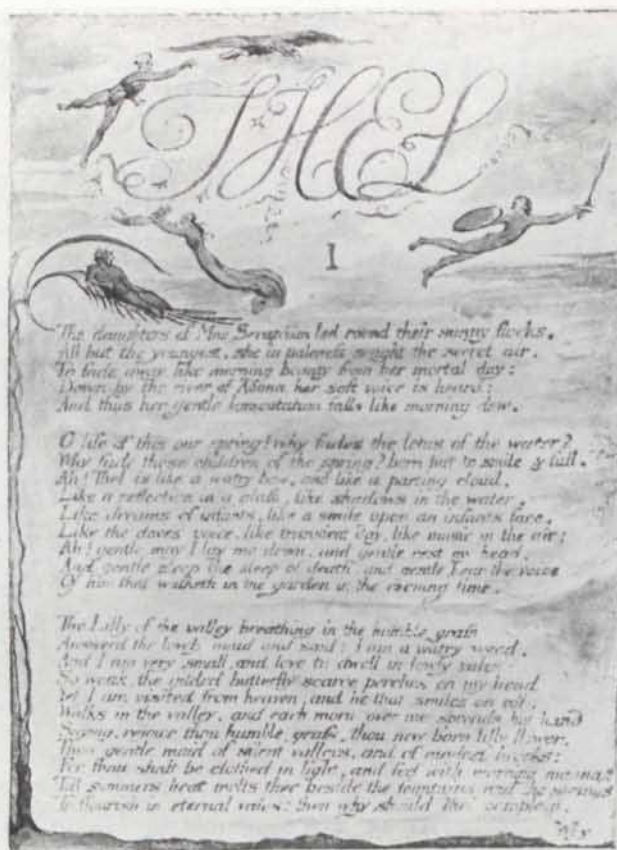 THEL
1
The daughters of Mne Seraphim led round their sunny flocks.
All but the youngest. she in paleness sought the secret air.
To fade away like morning beauty from her mortal day:
Down by the river of Adona her soft voice is heard:
And thus her gentle lamentation falls like morning dew.
O life of this our spring! why fades the lotus of the water?
Why fade these children of the spring? born but to smile & fall.
Ah! Thel is like a watry bow. and like a parting cloud.
Like a reflection in a glass. like shadows in the water.
Like dreams of infants. like a smile upon an infants face.
Like the doves voice, like transient day, like music in the air;
Ah! gentle may I lay me down, and gentle rest my head.
And gentle sleep the sleep of death. and gentle hear the voice
Of him that walketh in the garden in the evening time.
The Lilly of the valley breathing in the humble grass
Answerd the lovely maid and said; I am a watry weed.
And I am very small, and love to dwell in lowly vales:
So weak, the gilded butterfly scarce perches on my head
Yet I am visited from heaven, and he that smiles on all,
Walks in the valley, and each morn over me spreads his hand
Saying, rejoice thou humble grass, thou new-born lilly flower.
Thou gentle maid of silent valleys, and of modest brooks:
For thou shalt be clothed in light, and fed with morning manna:
Till summers heat melts thee beside the fountains and the springs
To flourish in eternal vales: then why should Thel complain.
Why